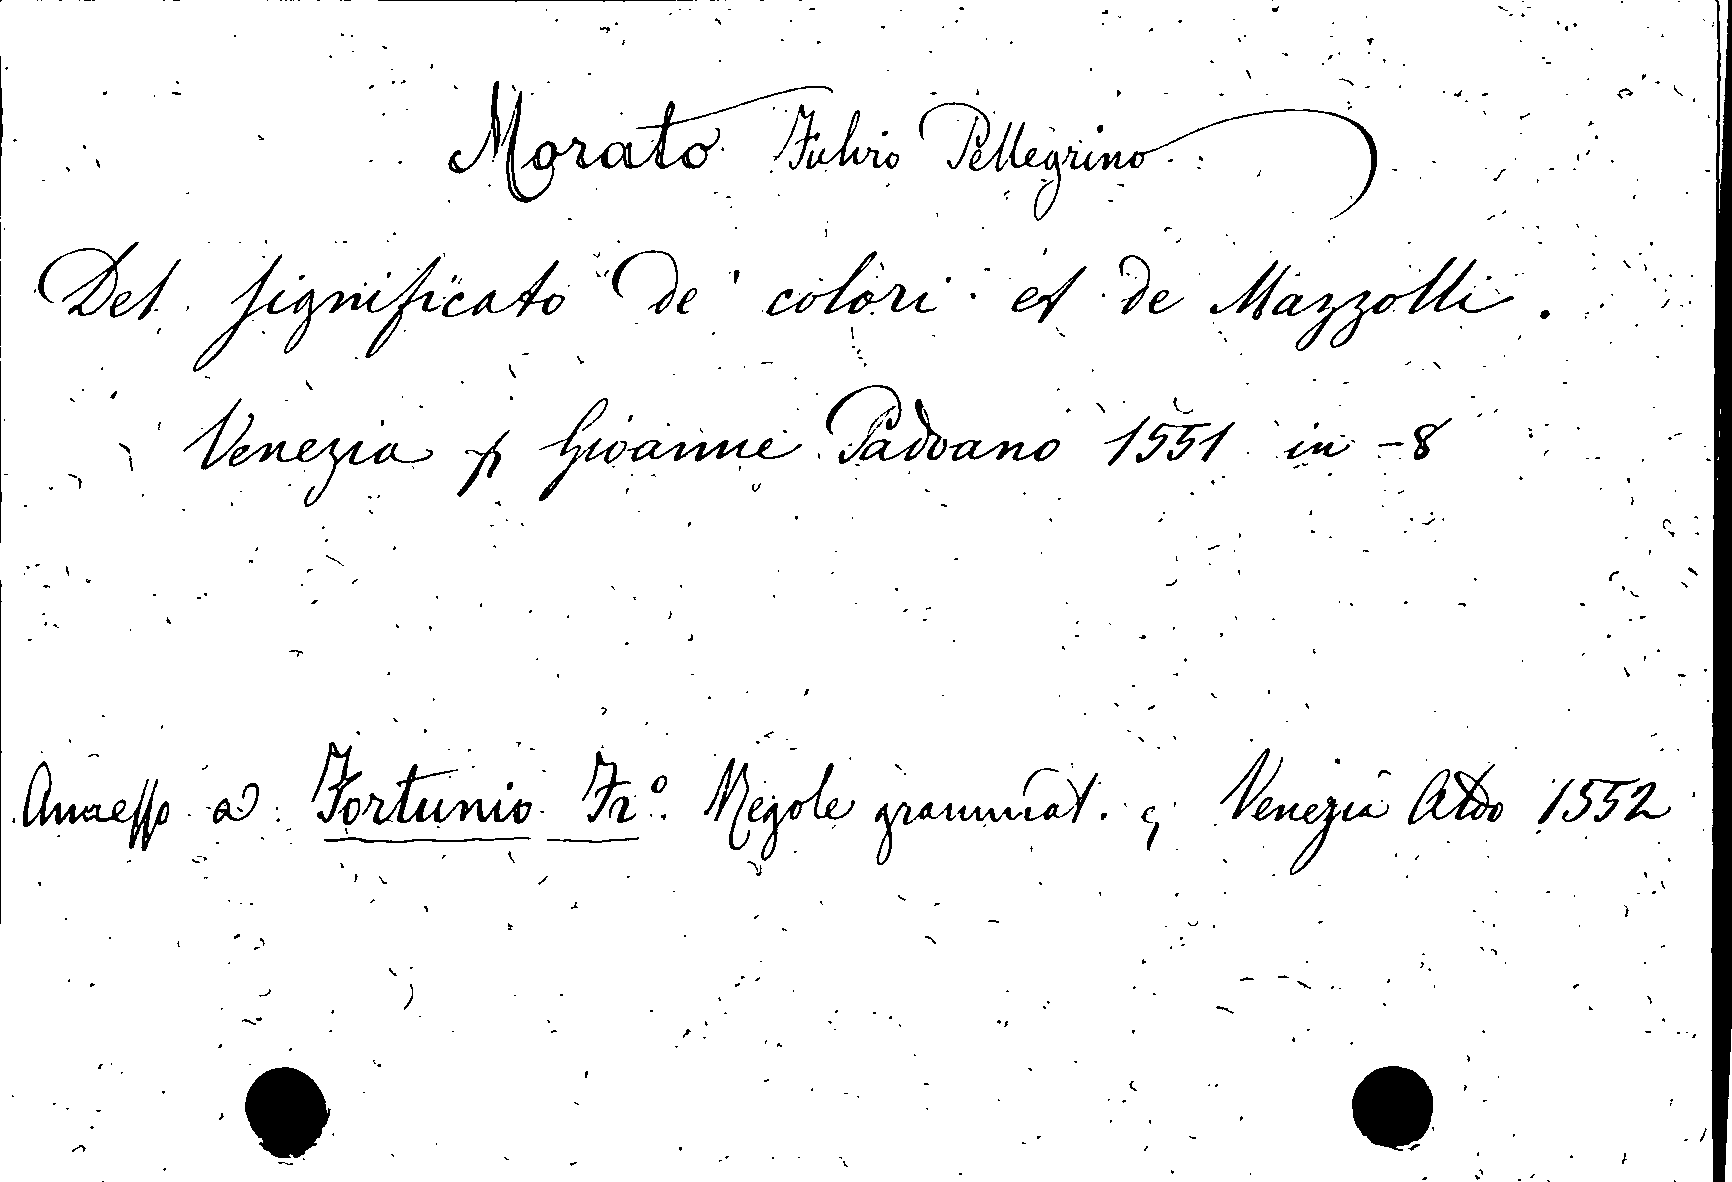 Morato Fulvio Pellegrino
Del significato de' colori et de Mazzolli.
Venezia p Gioanne Padoano 1551 in-8
Annesso a Fortunio Frº. Regole grammat. Venezia Aldo 1552